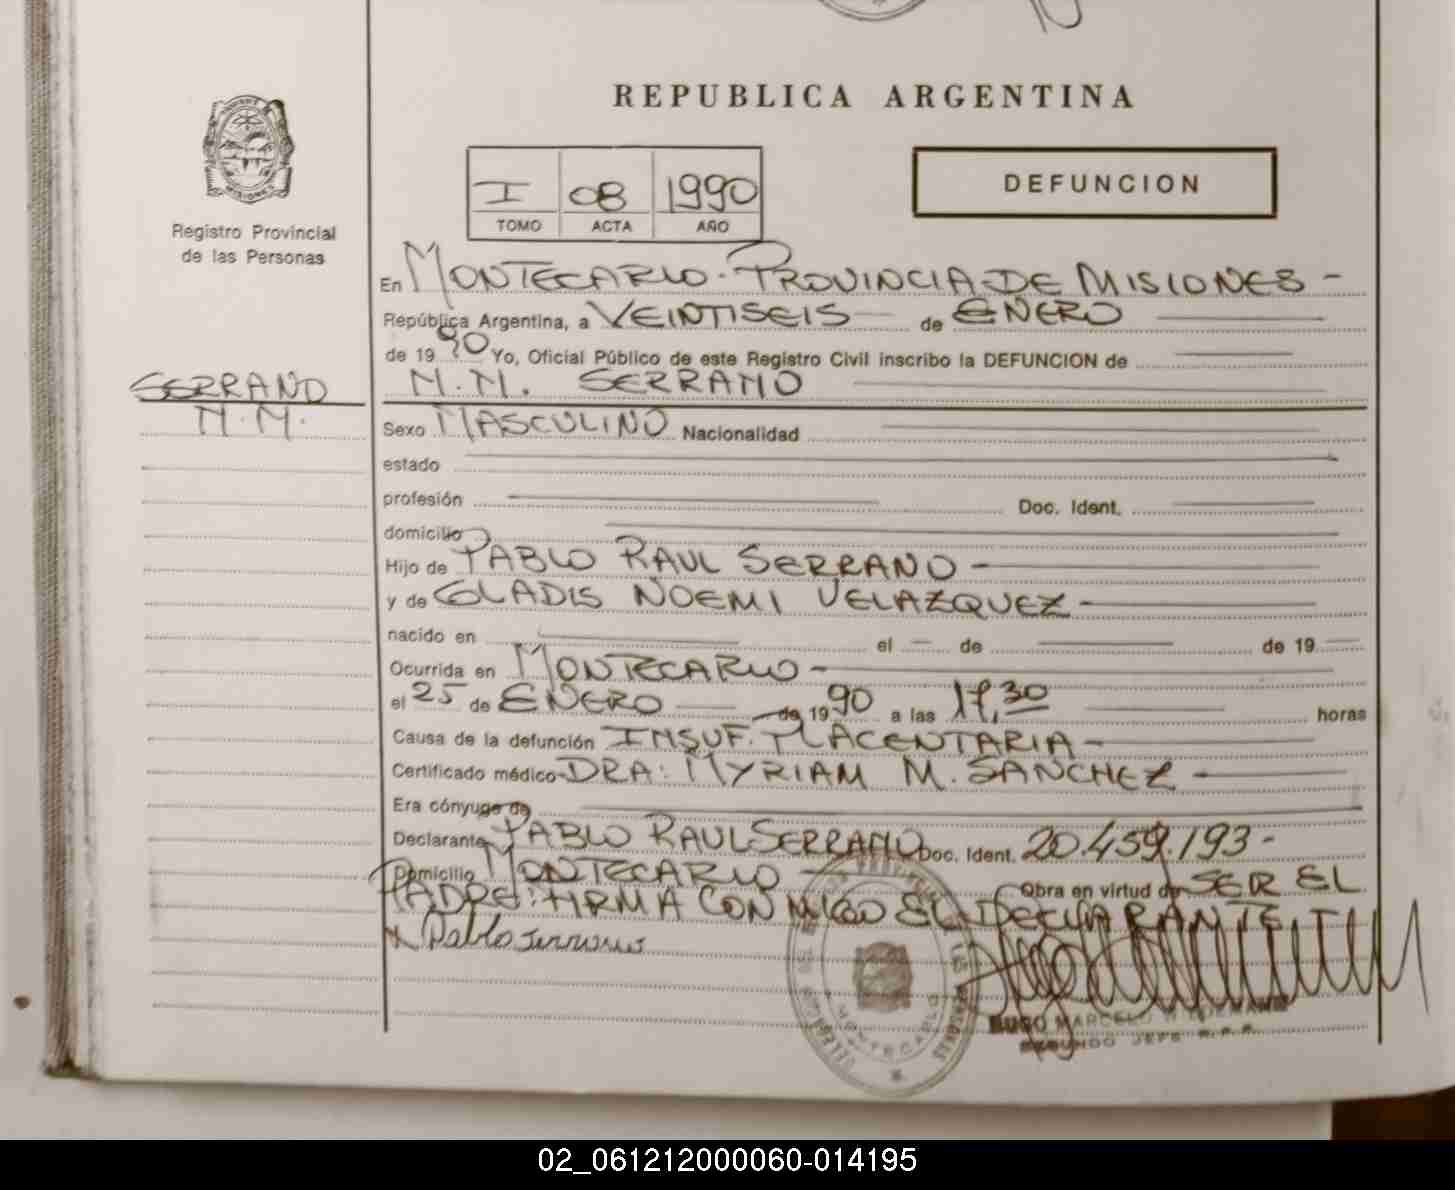 REPUBLICA ARGENTINA
I 08 1990
TOMO ACTA AÑO
DEFUNCION
MISIONES
Registro Provincial
de las Personas
SERRANO
N.N.
En MONTECARLO - PROVINCIA DE MISIONES -
República Argentina, a VEINTISEIS de ENERO
de 19 90 Yo, Oficial Público de este Registro Civil inscribo la DEFUNCION de
N.N. SERRANO
Sexo MASCULINO Nacionalidad
estado
profesión Doc. Ident.
domicilio
Hijo de PABLO RAUL SERRANO -
y de GLADIS NOEMI VELAZQUEZ -
nacido en el de de 19
Ocurrida en MONTECARLO -
el 25 de ENERO de 19 90 a las 17,30 horas
Causa de la defunción INSUF. PLACENTARIA -
Certificado médico DRA: MYRIAM M. SANCHEZ -
Era cónyuge de
Declarante PABLO RAUL SERRANO Doc. Ident. 20.459.193 -
Domicilio MONTECARLO - Obra en virtud de SER EL
PADRE: FIRMA CONMIGO EL DECLARANTE
x Pablo Serrano
MONTECARLO
HUGO MARCELO
SEGUNDO JEFE R.P.P.
02_061212000060-014195